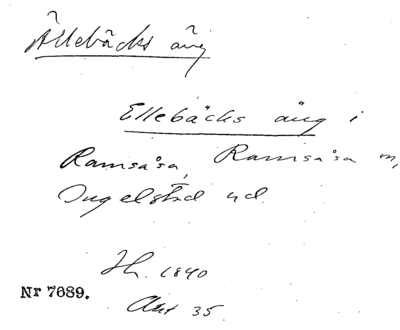 Ällebäcks äng
Ellebäcks äng i
Ramsåsa, Ramsåsa sn,
Ingelstad hd.
Jh. 1840
Nr 7689.
Akt 35